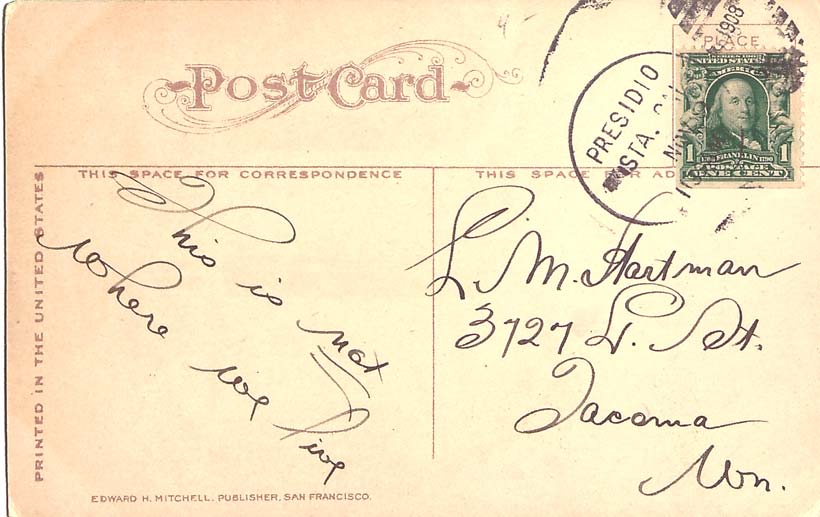 4-
Post Card
PLACE
PRESIDIO
STA.
NOV
1908
SERIES 1902
UNITED STATES
AMERICA
1 FRANKLIN 1
POSTAGE
ONE CENT
THIS SPACE FOR CORRESPONDENCE
THIS SPACE FOR AD
PRINTED IN THE UNITED STATES
This is not
where we live
L. M. Hartman
3727 L. St.
Tacoma
Wn.
EDWARD H. MITCHELL, PUBLISHER, SAN FRANCISCO.